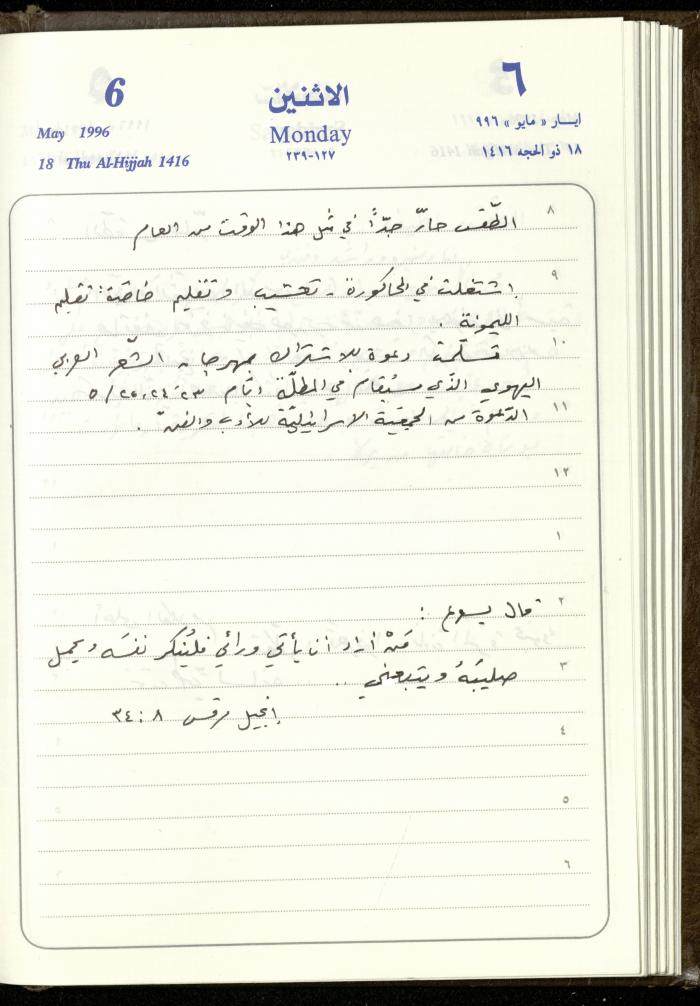 6
الاثنين
٦
May 1996
Monday
ايـــار « مايو » ٩٩٦
18 Thu Al-Hijjah 1416
٢٣٩-١٢٧
١٨ ذو الحجه ١٤١٦
٨
الطّقس حارّ جدًّا في مثل هذا الوقت من العام
٩
اشتغلت في الحاكورة - تعشيب وتقليم خاصّة: تقليم
الليمونة .
١٠
تسلّمت دعوة للاشتراك بمهرجان الشّعر العربي
اليهودي الذّي سيُقام في المطلّة ايّام ٢٣-٢٤،٢٥/٥
١١
الدّعوة من الجمعيّة الاسرائيليّة للأدب والفنّ .
١٢
١
٢
قال يسوع :
مَنْ أراد ان يأتي ورائي فليُنكر نفسَه ويحمل
٣
صليبَهُ ويتبعني ..
إنجيل مرقس ٨:٣٤
٤
٥
٦